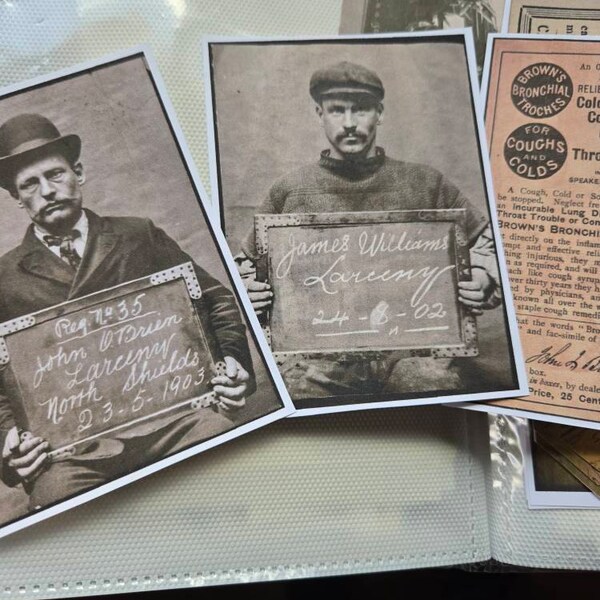 Reg. No 35
John O'Brien
Larceny
North Shields
23-5-1903
James Williams
Larceny
24-6-02
BROWN'S
BRONCHIAL
TROCHES
FOR
COUGHS
AND
COLDS
An
RELIE
Co
Thro
SPEAKE
A Cough, Cold or So
be stopped. Neglect fre
an Incurable Lung D
Throat Trouble or Con
BROWN'S BRONCH
directly on the inflam
mpt and effective relie
ning injurious, they m
as required, and will
els like cough syrup
ver thirty years they h
ded by physicians, and
known all over the w
staple cough remedie
hat the words "Bro
and fac-simile of
box.
in boxes, by deale
Price, 25 Cent